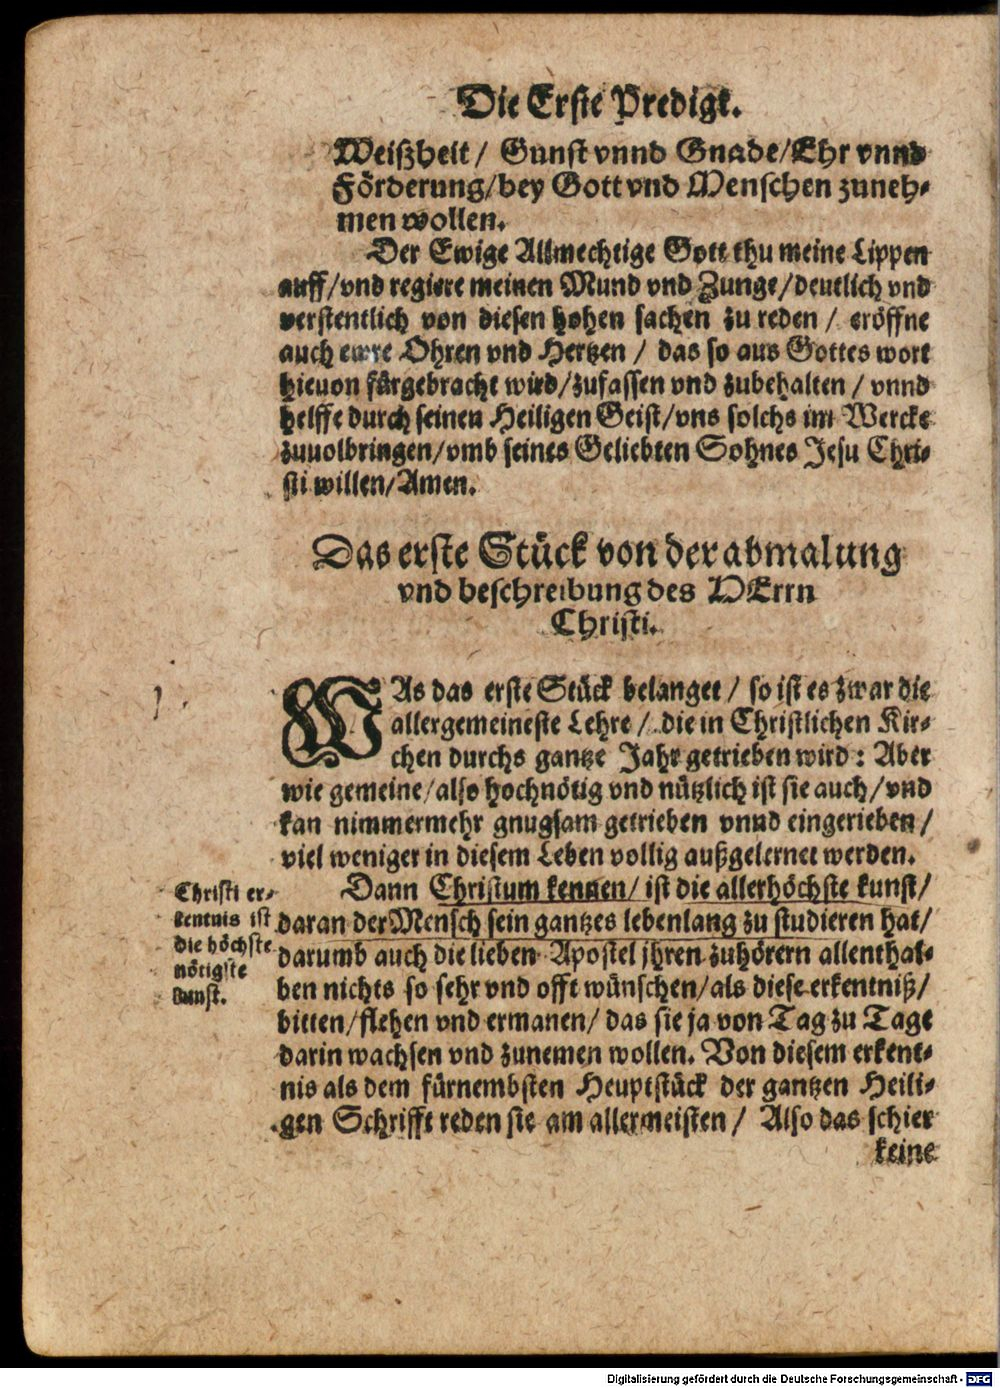 Die Erste Predigt.
Weißheit / Gunst vnnd Gnade / Ehr vnnd
Förderung / bey Gott vnd Menschen zuneh-
men wollen.
Der Ewige Allmechtige Gott thu meine Lippen
auff / vnd regiere meinen Mund vnd Zunge / deutlich vnd
verstentlich von diesen hohen sachen zu reden / eröffne
auch ewre Ohren vnd Hertzen / das so aus Gottes wort
hieuon fürgebracht wird / zufassen vnd zubehalten / vnnd
helffe durch seinen Heiligen Geist / vns solchs im Wercke
zuuolbringen / vmb seines Geliebten Sohnes Jesu Chri-
sti willen / Amen.
Das erste Stück von der abmalung
vnd beschreibung des HErrn
Christi.
WAs das erste Stück belanget / so ist es zwar die
allergemeineste Lehre / die in Christlichen Kir-
chen durchs gantze Jahr getrieben wird : Aber
wie gemeine / also hochnötig vnd nützlich ist sie auch / vnd
kan nimmermehr gnugsam getrieben vnnd eingerieben /
viel weniger in diesem Leben vollig außgelernet werden.
Dann Christum kennen / ist die allerhöchste kunst /
daran der Mensch sein gantzes lebenlang zu studieren hat /
darumb auch die lieben Apostel jhren zuhörern allenthal-
ben nichts so sehr vnd offt wünschen / als diese erkentniß /
bitten / flehen vnd ermanen / das sie ja von Tag zu Tage
darin wachsen vnd zunemen wollen. Von diesem erkent-
nis als dem fürnembsten Heuptstück der gantzen Heili-
gen Schrifft reden sie am allermeisten / Also das schier
keine
Christi er-
kentnis ist
die höchste
nötigste
kunst.
Digitalisierung gefördert durch die Deutsche Forschungsgemeinschaft - DFG